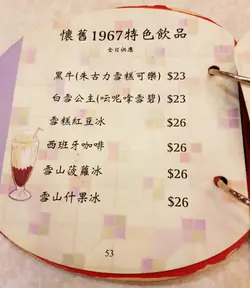 懷舊1967特色飲品
全日供應
黑牛(朱古力雪糕可樂) $23
白雪公主(呍呢嗱雪碧) $23
雪糕紅豆冰 $26
西班牙咖啡 $26
雪山菠蘿冰 $26
雪山什果冰 $26
53